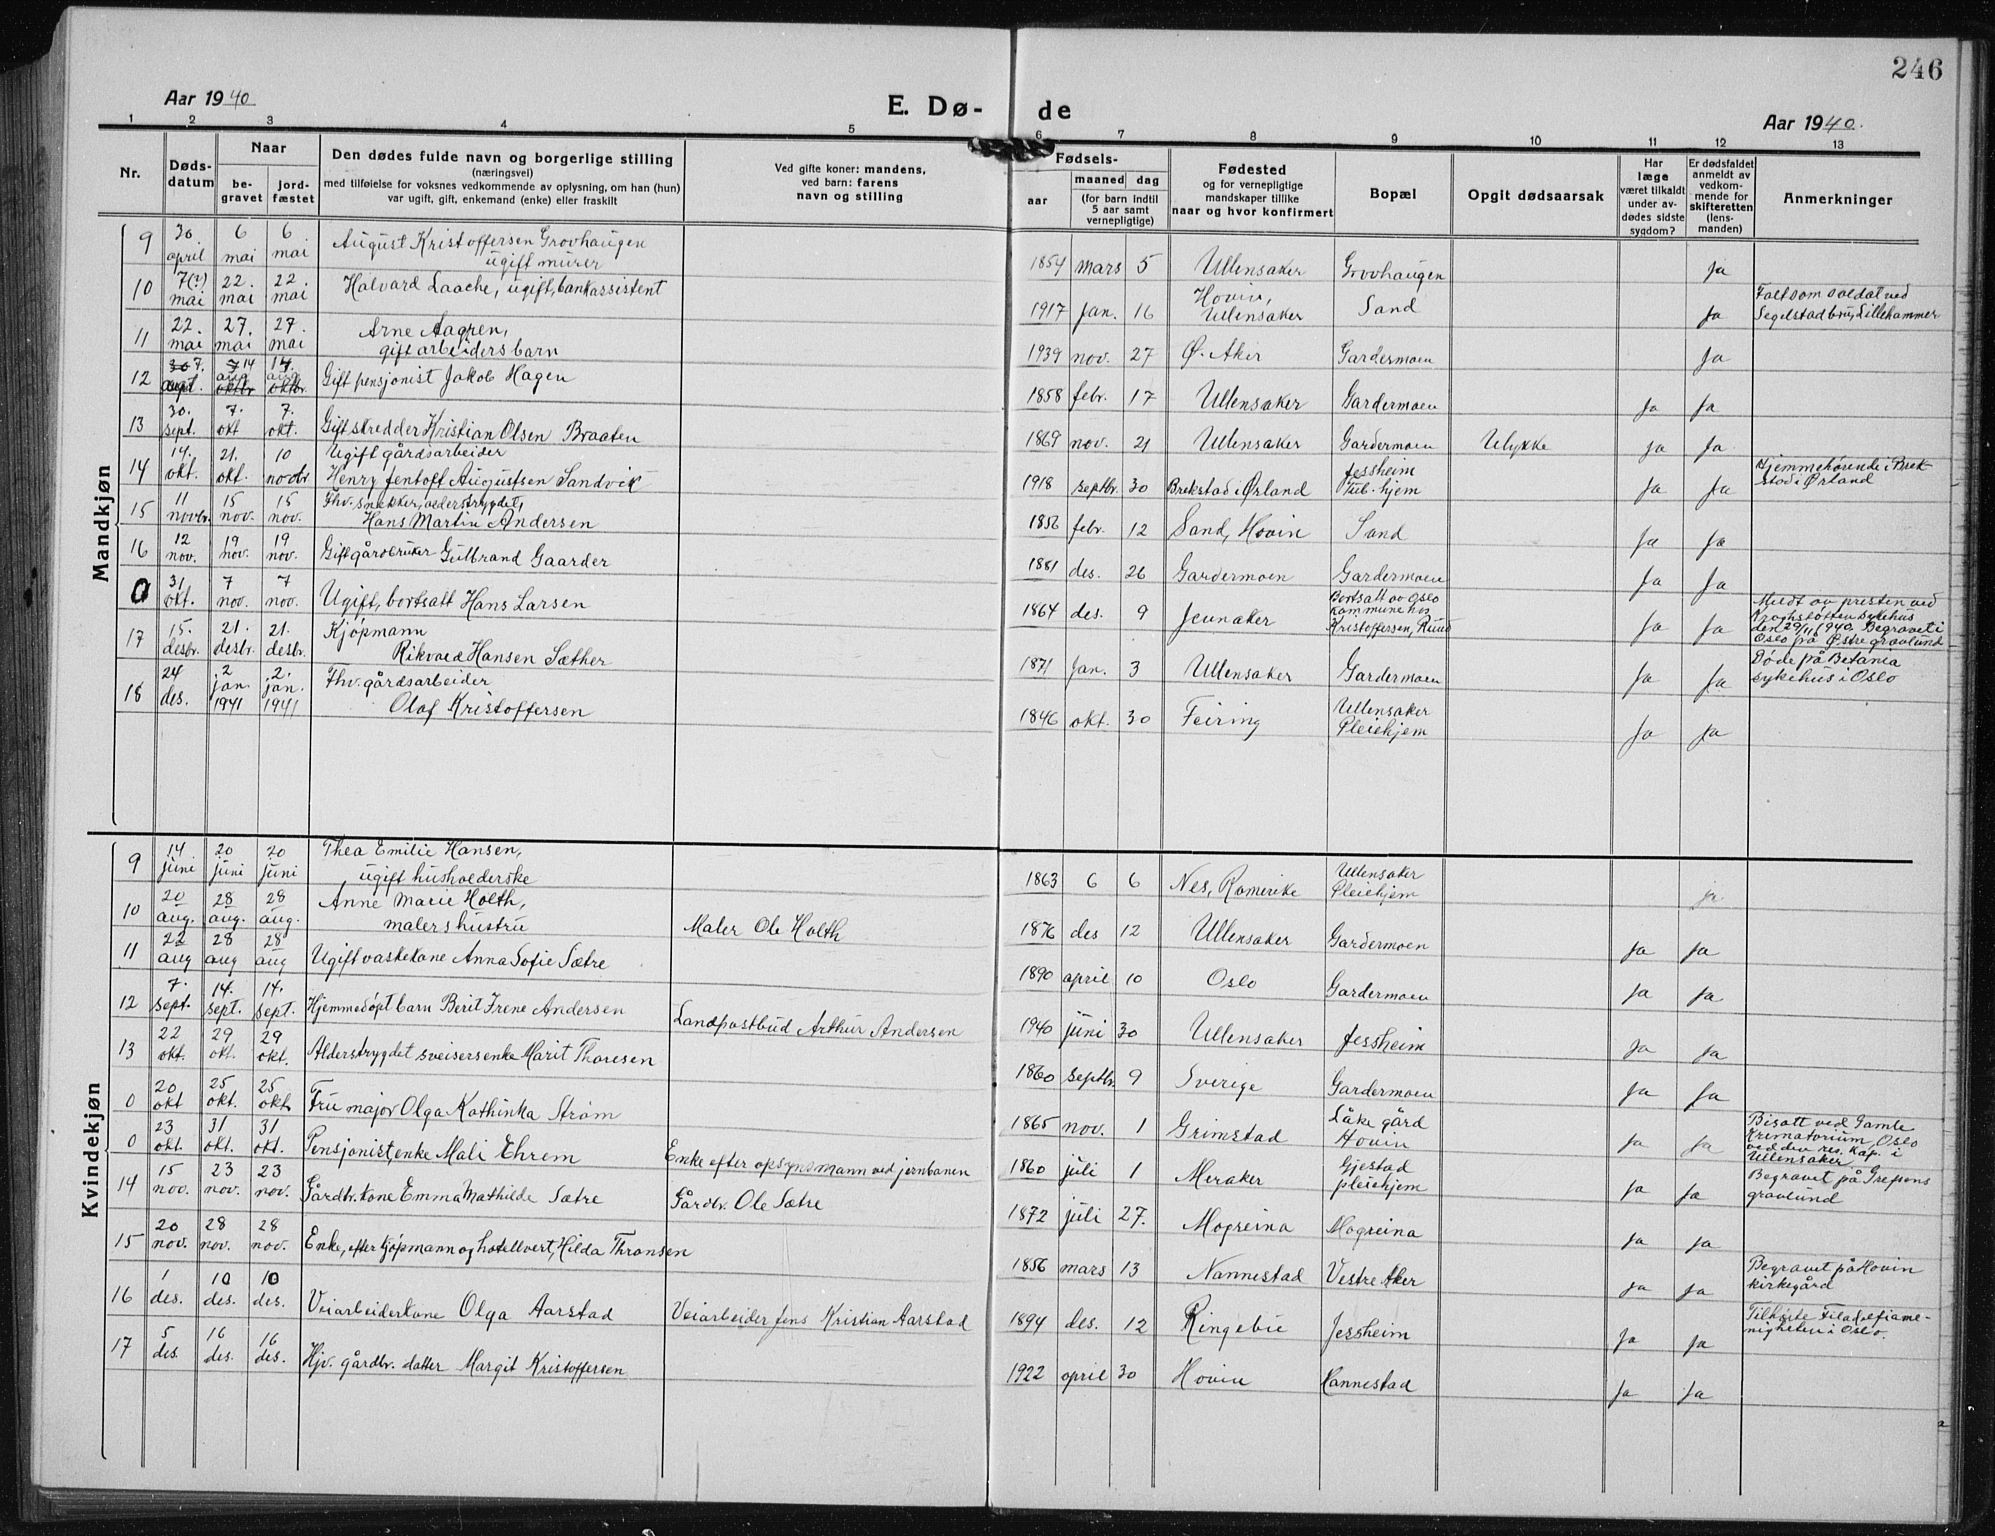 246
Aar 1940
E. Dø-
de
Aar 1940.
1 2 3 4 5 6 7 8 9 10 11 12 13
Nr.
Døds-
datum
Naar
be-
gravet
jord-
fæstet
Den dødes fulde navn og borgerlige stilling
(næringsvei)
med tilføielse for voksnes vedkommende av oplysning, om han (hun)
var ugift, gift, enkemand (enke) eller fraskilt
Ved gifte koner: mandens,
ved barn: farens
navn og stilling
Fødsels-
aar
maaned
dag
(for barn indtil
5 aar samt
vernepligtige)
Fødested
og for vernepligtige
mandskaper tillike
naar og hvor konfirmert
Bopæl
Opgit dødsaarsak
Har
læge
været tilkaldt
under av-
dødes sidste
sygdom?
Er dødsfaldet
anmeldt av
vedkom-
mende for
skifteretten
(lens-
manden)
Anmerkninger
Mandkjøn
9 30. april 6 mai 6 mai August Kristoffersen Grovhaugen
ugift murer 1854 mars 5 Ullensaker Grovhaugen ja
10 7(?) mai 22. mai 22. mai Halvard Laache, ugift, bankassistent 1917 jan. 16 Hovin,
Ullensaker Sand Ja Falt som soldat ved
Segelstad bru, Lillehammer
11 22. mai 27. mai 27. mai Arne Aagren,
gift arbeiders barn 1939 nov. 27 Ø. Aker Gardermoen Ja
12 30 7. 7 14 aug oktbr. 14 aug oktbr. Gift pensjonist Jakob Hagen 1858 febr. 17 Ullensaker Gardermoen Ja Ja
13 30. sept. 7. okt 7. okt. Gift skredder Kristian Olsen Braaten 1869 nov. 21 Ullensaker Gardermoen Ulykke Ja Ja
14 14. okt. 21. okt. 10 novbr Ugift gårdsarbeider
Henry Jentoft Augustsen Sandvik 1918 septbr. 30 Brekstad i Ørland Jessheim
Tub. hjem Ja Ja Hjemmehørende i Brek-
stad i Ørland
15 11 novbr. 15 nov. 15 nov. Fhv. snekker, alderstrygdet,
Hans Martin Andersen 1856 febr. 12 Sand, Hovin Sand Ja Ja
16 12 nov. 19 nov. 19 nov. Gift gårdbruker Gulbrand Gaarder 1881 des. 26 Gardermoen Gardermoen Ja Ja
0 31 okt. 7 nov. 7 nov. Ugift, bortsatt Hans Larsen 1864 des. 9 Jevnaker Bortsatt av Oslo
kommune hos
Kristoffersen, Ruud Ja Ja Meldt av presten ved
Kroghstøtten sykehus
den 29/11 1940. Begravet i
Oslo på Østre gravlund
17 15. desbr. 21. desbr. 21. desbr. Kjøpmann
Rikvard Hansen Sæther 1871 Jan. 3 Ullensaker Gardermoen Ja Ja Døde på Betania
sykehus i Oslo
18 24 des. 2 jan. 1941 2. jan. 1941 Fhv. gårdsarbeider
Olaf Kristoffersen 1846 okt. 30 Feiring Ullensaker
Pleiehjem Ja Ja
Kvindekjøn
9 14 juni 20 juni 20 juni Thea Emilie Hansen,
ugift husholderske 1863 6 6 Nes, Romerike Ullensaker
Pleiehjem ja
10 20 aug. 28 aug. 28 aug. Anne Marie Holth,
malers hustru Maler Ole Holth 1876 des 12 Ullensaker Gardermoen Ja Ja
11 22 aug 28 aug 28 aug Ugift vaskekone Anna Sofie Sætre 1890 april 10 Oslo Gardermoen Ja Ja
12 7. sept. 14. sept. 14. sept. Hjemmedøpt barn Berit Irene Andersen Landpostbud Arthur Andersen 1940 juni 30 Ullensaker Jessheim Ja Ja
13 22 okt. 29 okt. 29 okt. Alderstrygdet sveisersenke Marit Thoresen 1860 septbr. 9 Sverige Gardermoen Ja Ja
0 20 okt 25 okt. 25 okt. Fru major Olga Kathinka Strøm 1865 nov. 1 Grimstad Låke gård
Hovin Ja Ja Bisatt ved Gamle
Krematorium, Oslo
ved den res. kap. i
Ullensaker
0 23 okt. 31 okt. 31 okt. Pensjonist, enke Mali Ehrem Enke efter opsynsmann ved jernbanen 1860 juli 1 Meraker Gjestad
pleiehjem Ja Ja Begravet på Grefsens
gravlund
14 15 nov. 23 nov. 23 nov. Gårdbr. kone Emma Mathilde Sætre Gårdbr. Ole Sætre 1872 juli 27. Mogreina Mogreina Ja Ja
15 20 nov. 28 nov. 28 nov. Enke, efter kjøpmann og hotellvert, Hilda Thransen 1856 mars 13 Nannestad Vestre Aker Ja Ja Begravet på Hovin
kirkegård
16 1 des. 10 des. 10 des. Veiarbeiderkone Olga Aarstad Veiarbeider Jens Kristian Aarstad 1894 des. 12 Ringebu Jessheim Ja Ja Tilhørte Filadelfiame-
nigheten i Oslo.
17 5 des. 16 des. 16 des. Hjv. gårdbr. datter Margit Kristoffersen 1922 april 30 Hovin Hannestad Ja Ja